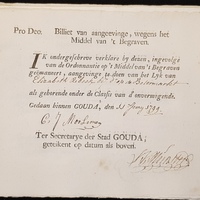 Pro Deo. Billet van aangeevinge, wegens het
Middel van 't Begraven.
IK ondergeschreve verklare by dezen, ingevolge
van de Ordonnantie op 't Middel van 't Begraven
geëmaneert, aangevinge te doen van het Lyk van
Elizabeth
als gehorende onder de Classis van d'onvermogende.
Gedaan binnen GOUDA, den 1799
C. J.
Ter Secretarye der Stad GOUDA,
geteikent op datum als boven.